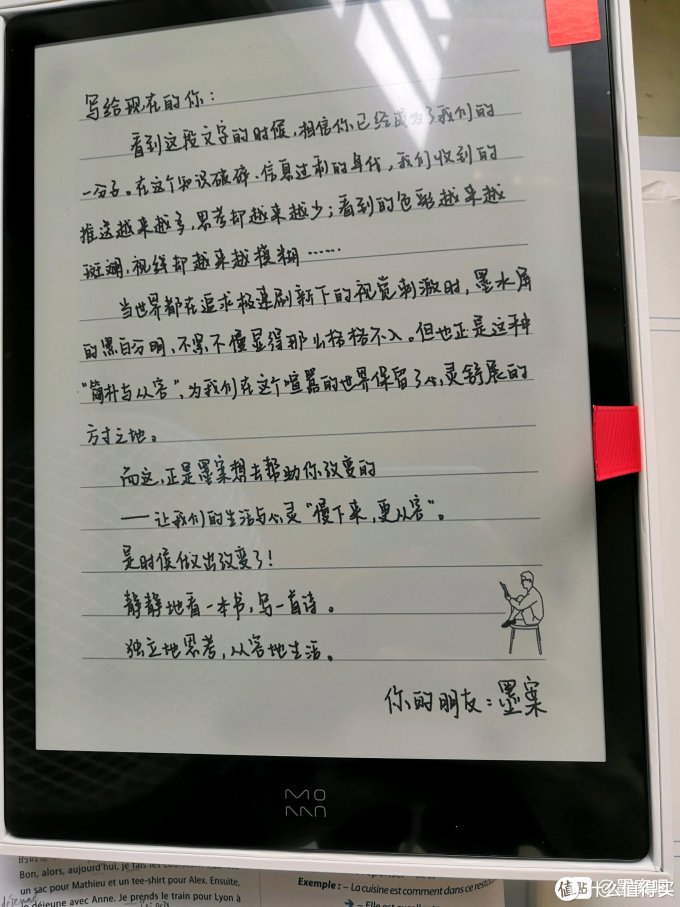 写给现在的你：
看到这段文字的时候，相信你已经成为了我们的
一份子。在这个知识破碎、信息过剩的年代，我们收到的
推送越来越多，思考却越来越少；看到的色彩越来越
斑斓，视线却越来越模糊……
当世界都在追求极速刷新下的视觉刺激时，墨水屏
的黑白分明，不紧不慢显得那么格格不入。但也正是这种
“简朴与从容”，为我们在这个喧嚣的世界保留了心灵舒展的
方寸之地。
而这，正是墨案想去帮助你改变的
——让我们的生活与心灵“慢下来，更从容”。
是时候做出改变了！
静静地看一本书，写一首诗。
独立地思考，从容地生活。
你的朋友：墨案
MOAN
Bon, alors, aujourd'hui, je fais les
un sac pour Mathieu et un tee-shirt pour Alex. Ensuite,
déjeune avec Anne. Je prends le train pour Lyon à
Exemple : – La cuisine est comment dans ce
→ – Elle est
值 什么值得买